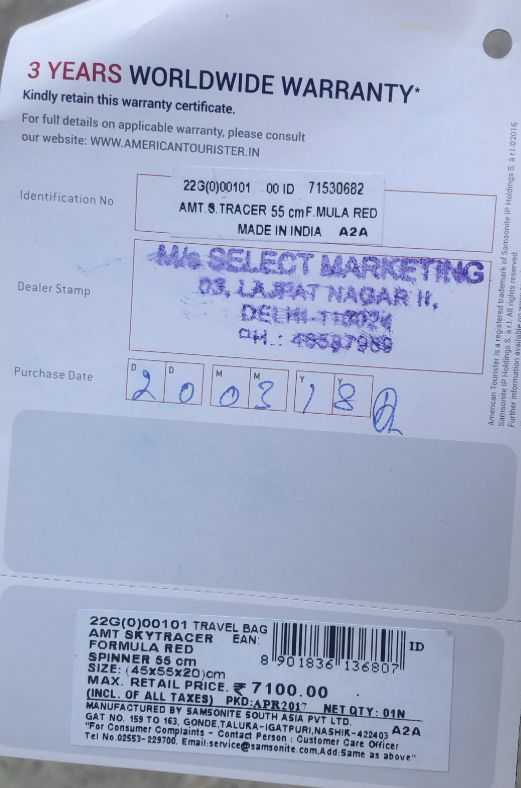 3 YEARS WORLDWIDE WARRANTY*
Kindly retain this warranty certificate.
For full details on applicable warranty, please consult
our website: WWW.AMERICANTOURISTER.IN
Identification No
22G(0)00101 00 ID 71530682
AMT.S.TRACER 55 cmF.MULA RED
MADE IN INDIA A2A
Dealer Stamp
M/s SELECT MARKETING
03, LAJPAT NAGAR II,
DELHI-110024
PH.:
Purchase Date
D D M M Y Y
2 0 0 3 1 8
American Tourister is a registered trademark of Samsonite IP Holdings S. à r.l. ©2016
Samsonite IP Holdings S. à r.l. All rights reserved.
Further information available on
22G(0)00101 TRAVEL BAG
AMT SKYTRACER EAN:
FORMULA RED
SPINNER 55 cm
SIZE: (45x55x20)cm
8 901836 136807
ID
MAX. RETAIL PRICE. ₹ 7100.00
(INCL. OF ALL TAXES) PKD:APR2017 NET QTY: 01N
MANUFACTURED BY SAMSONITE SOUTH ASIA PVT LTD.
GAT NO. 159 TO 163, GONDE,TALUKA-IGATPURI,NASHIK-422403 A2A
"For Consumer Complaints - Contact Person : Customer Care Officer
Tel No.02553-229700. Email:service@samsonite.com,Add:Same as above"